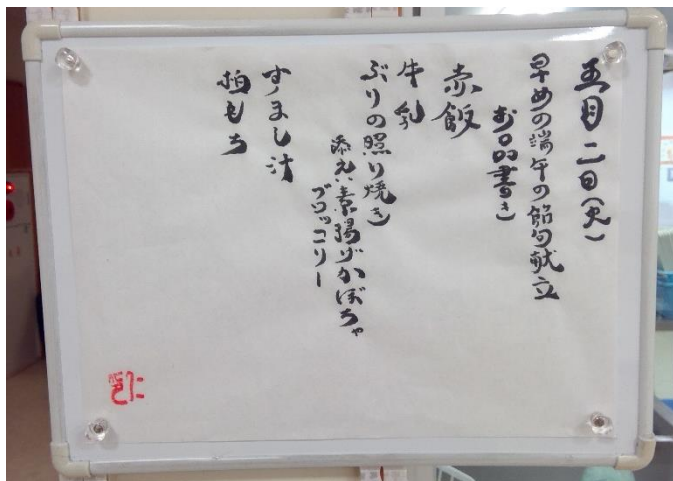 五月二日(火)
早めの端午の節句献立
お品書き
赤飯
牛乳
ぶりの照り焼き
添え、素揚げかぼちゃ
ブロッコリー
すまし汁
柏もち